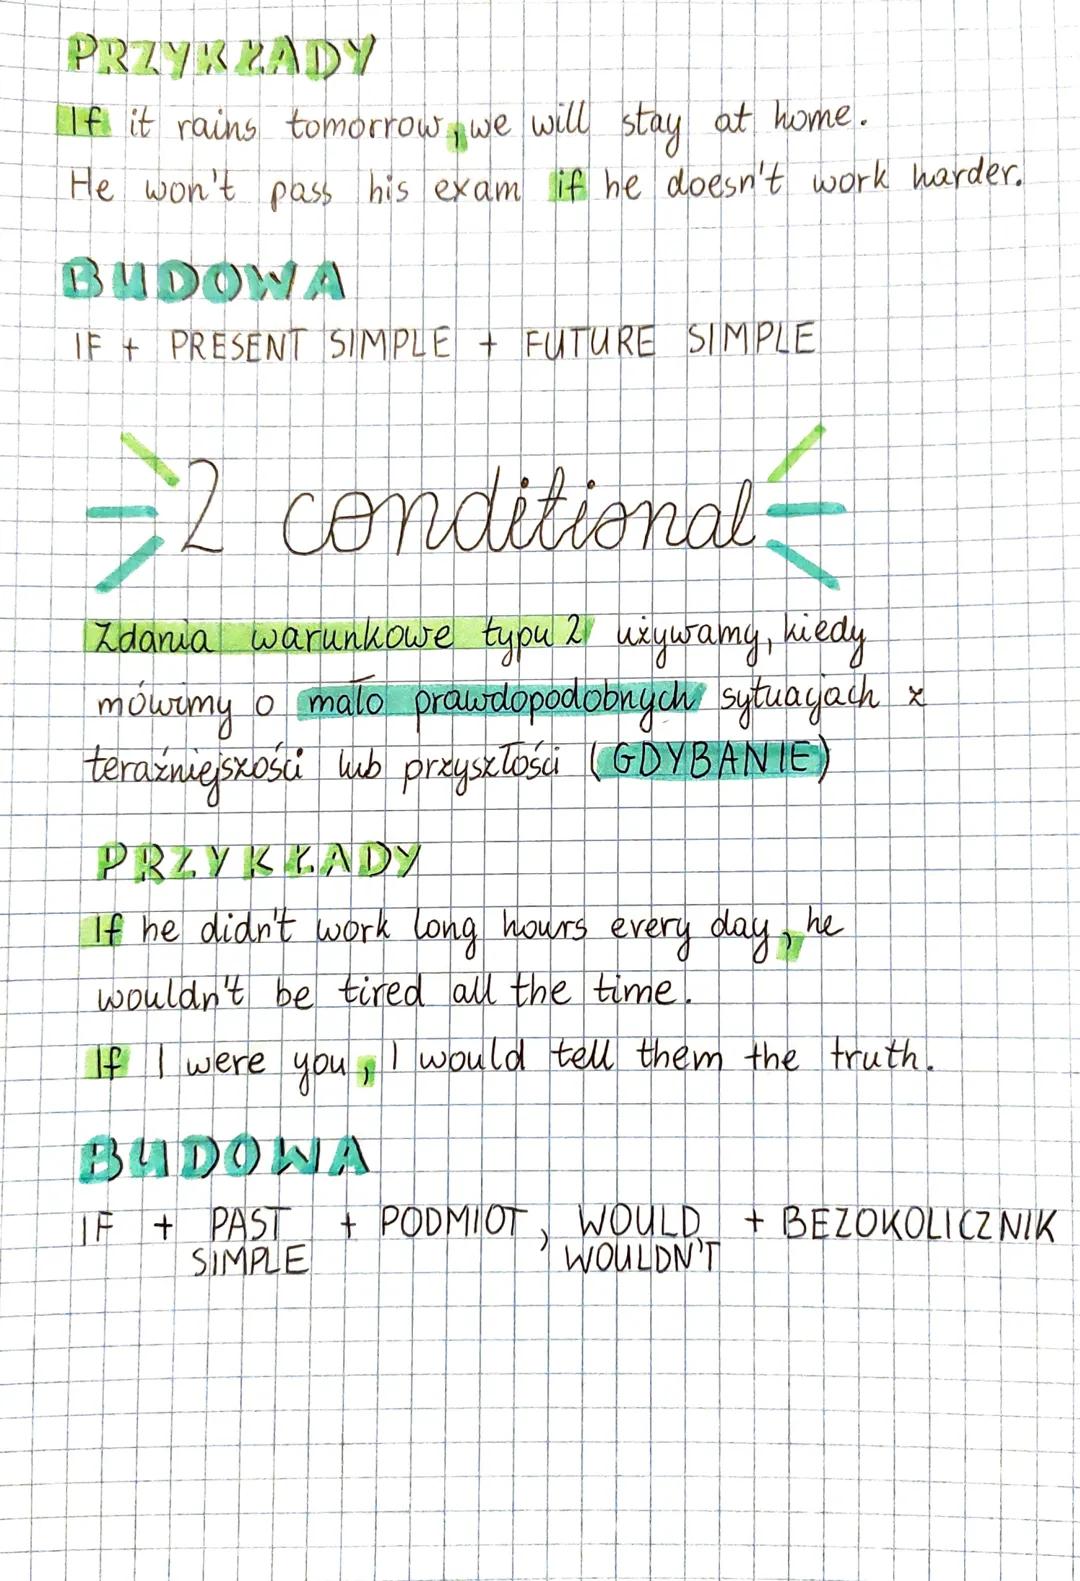 PRZYKŁADY
If it rains tomorrow, we will stay at home.
He won't pass his exam if he doesn't work harder.
BUDOWA
IF + PRESENT SIMPLE + FUTURE SIMPLE
2 conditional
Zdania warunkowe typu 2 używamy, kiedy
mówimy o mało prawdopodobnych sytuacjach z
teraźniejszości lub przyszłości (GDYBANIE)
PRZYKŁADY
If he didn't work long hours every day, he
wouldn't be tired all the time.
If I were you, I would tell them the truth.
BUDOWA
IF + PAST + PODMIOT, WOULD + BEZOKOLICZNIK
SIMPLE WOULDN'T